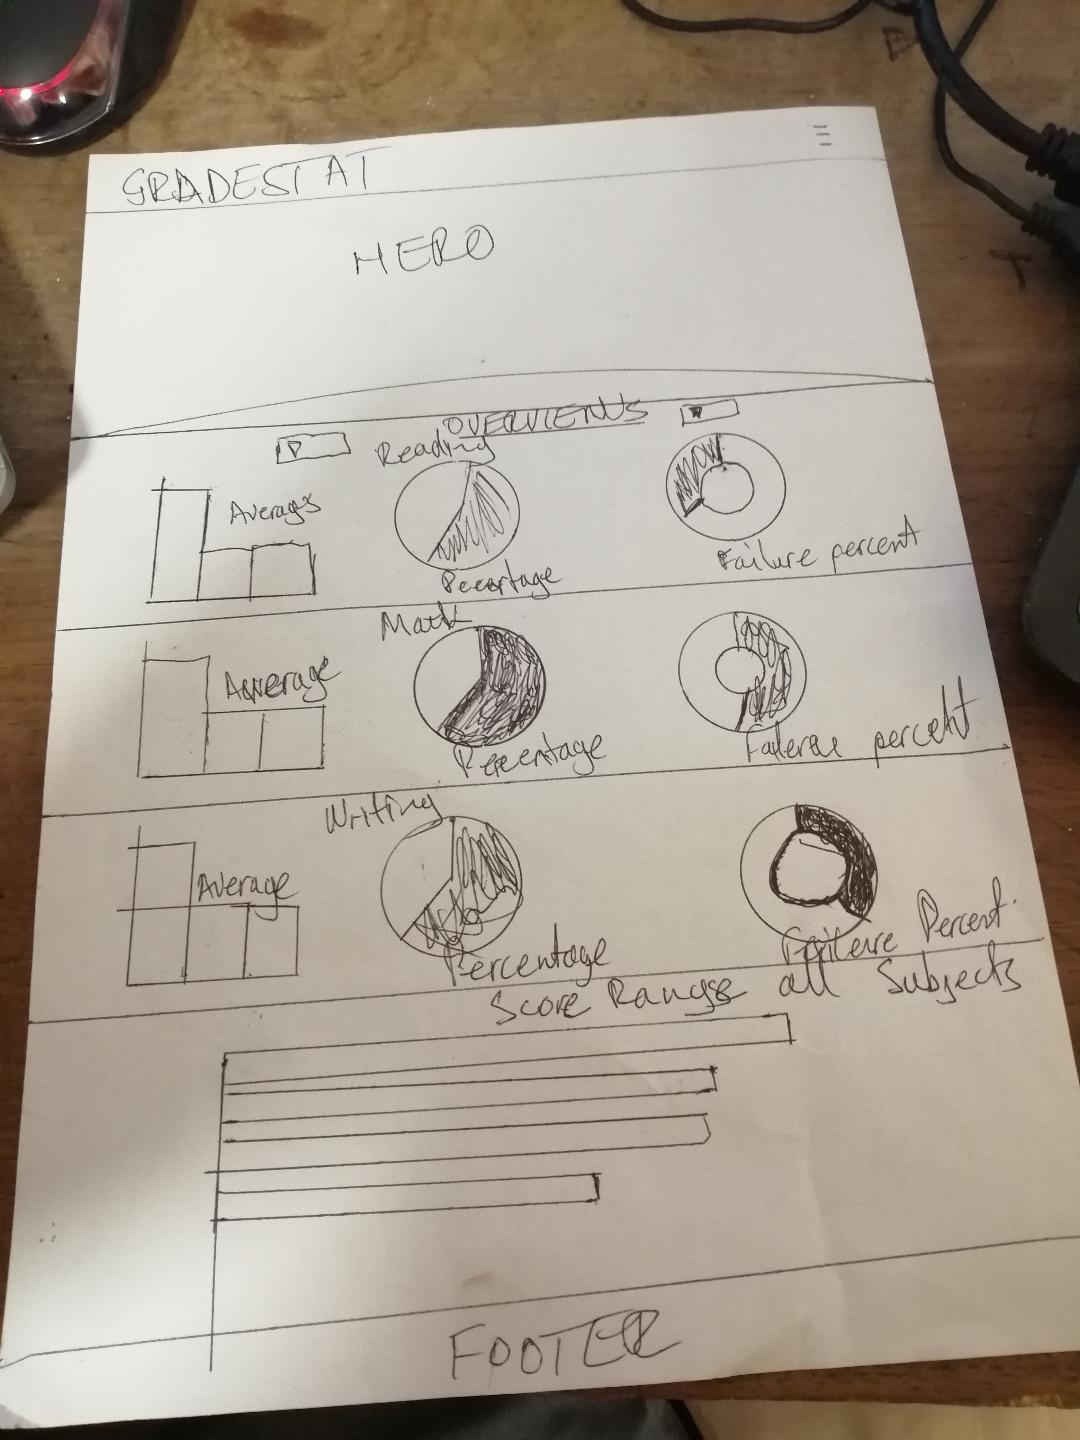 GRADESTAT
HERO
OVERVIEWS
Reading
Averags
Pecertage
Failure percent
Math
Average
Percentage
Failerue percent
Writing
Average
Percentage
Faileure Percent
Score Range all Subjects
FOOTER